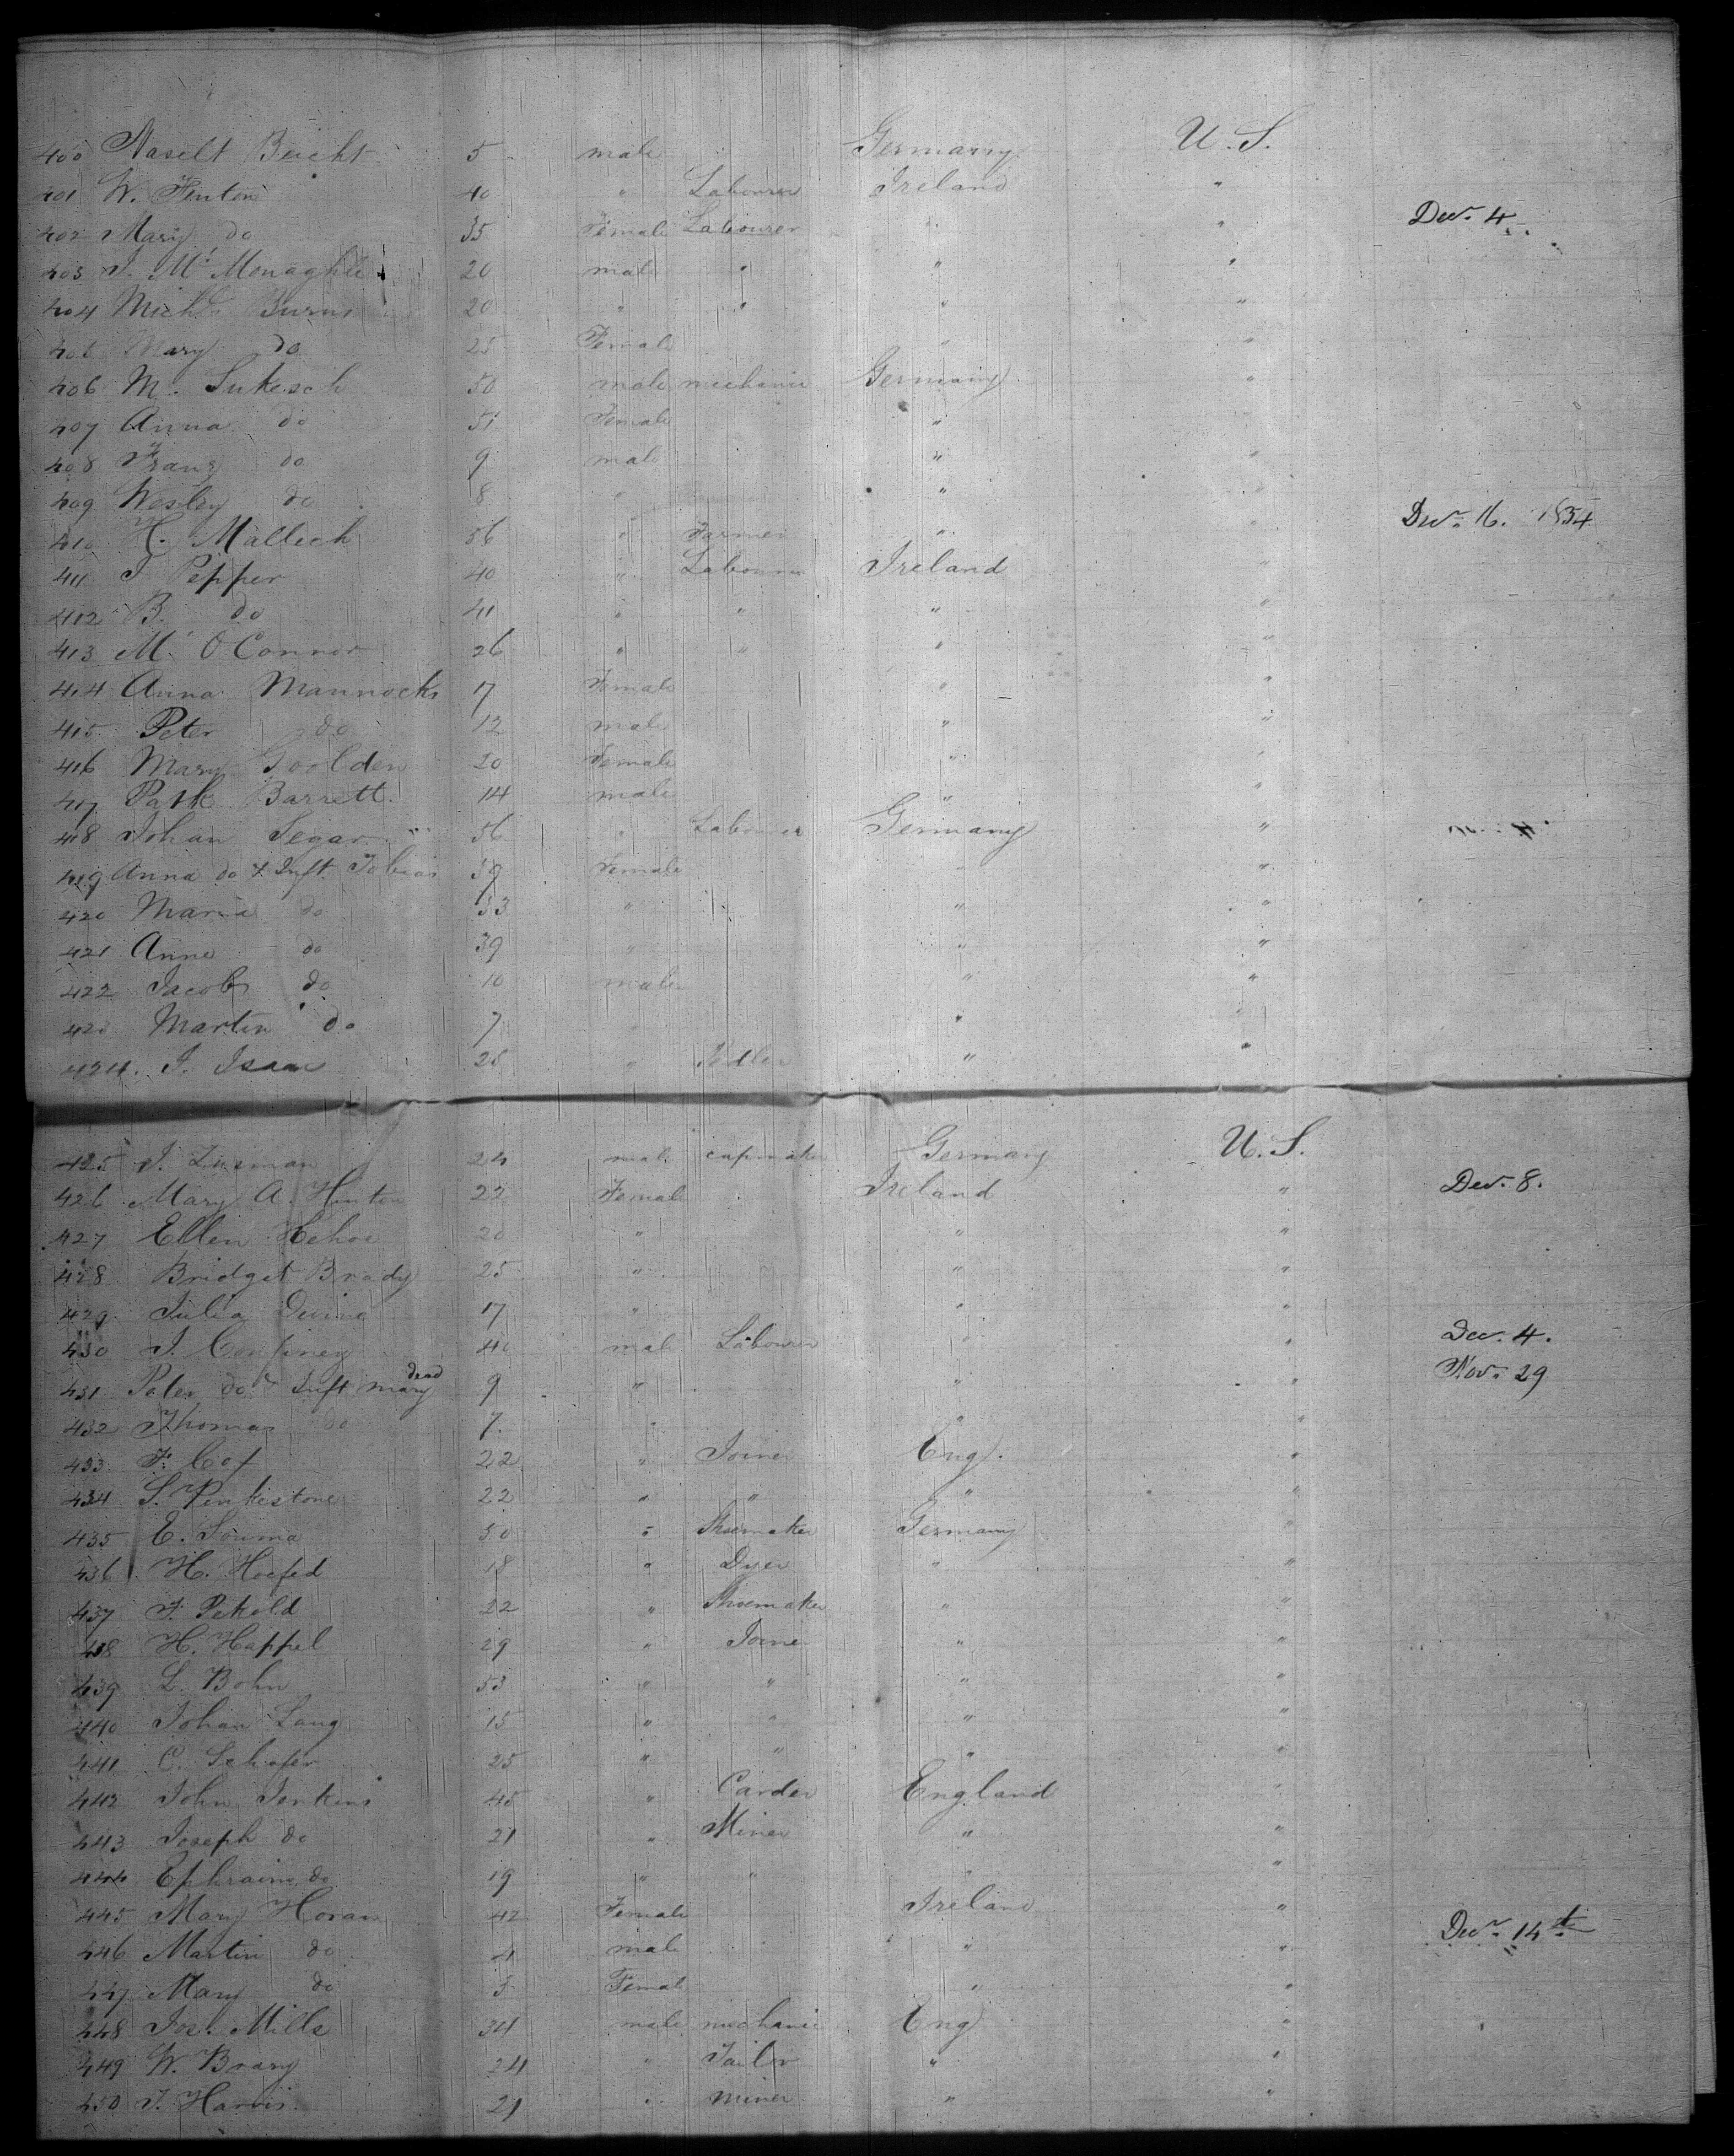 400 Naselt Beicht 5 male Germany U. S.
401 W. Fenton 40 " Labourer Ireland "
402 Mary do 35 Female Labourer " " Decr. 4
403 J. Mc Monaghle 20 male " " "
404 Michl Burns 20 " " " "
405 Mary do 25 Female " "
406 M. Sukesch 50 male mechanic Germany "
407 Anna do 51 Female " "
408 Franz do 9 male " "
409 Wesley do 8 " " "
410 H. Mallech 56 " Farmer " " Decr. 16. 1854
411 J Pepper 40 " Labourer Ireland "
412 B. do 41 " " " "
413 M. O Connor 26 " " " "
414 Anna Mannocks 17 Female " "
415 Peter do 12 male " "
416 Mary Goolden 20 Female " "
417 Patk Barrett 14 male " "
418 Johan Segar 56 " Labourer Germany "
419 Anna do & Inft. Tobias 39 Female " "
420 Maria do 33 " " "
421 Anne do 39 " " "
422 Jacob do 10 male " "
423 Martin do 7 " " "
424. J. Isaac 25 " Pedler " "
425 J. Zusman 24 male capmaker Germany U. S.
426 Mary A. Hinton 22 Female Ireland " Decr. 8.
427 Ellen Kehoe 20 " " "
428 Bridget Brady 25 " " "
429 Julia Divine 17 " " "
430 J. 40 male Labourer " " Decr. 4.
431 Peter do & Inft mary dead 9 " " " Nov. 29
432 Thomas do 7. " " "
433 F. Cox 22 " Joiner Eng. "
434 S. Penkestone 22 " " " "
435 E. Souma 50 " Shoemaker Germany "
436 H. Hoefed 18 " Dyer " "
437 F. Pekold 22 " Shoemaker " "
438 H. Happel 29 " Joiner " "
439 L. Bohn 53 " " " "
440 Johan Lang 15 " " " "
441 C. Schafer 25 " " " "
442 John Jenkins 45 " Carder England "
443 Joseph do 21 " Miner " "
444 Ephraim do 19 " " " "
445 Mary Horan 42 Female Ireland "
446 Martin do 4 male " " Decr. 14th
447 Mary do 3 Female " "
448 Jos. Mills 34 male mechanic Eng "
449 W. Brany 24 " Tailor " "
450 J. Harris. 21 " miner " "